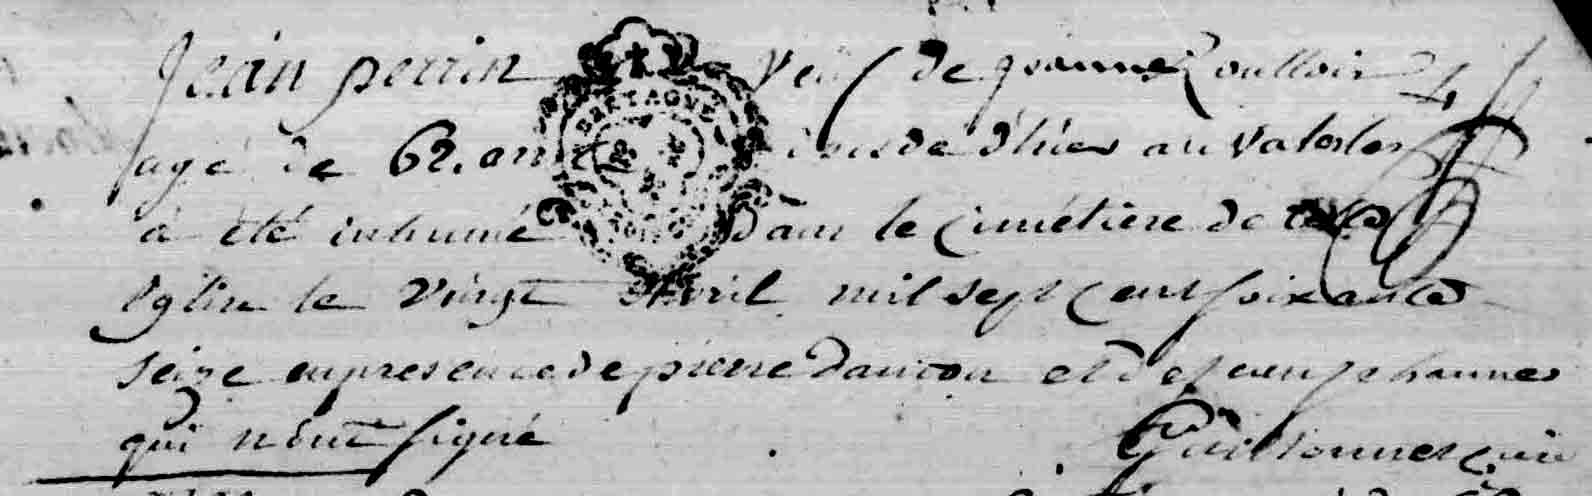 Jean perrin veuf de jeanne Roulloir
agé de 62. ans décédé d'hier au Valerler
à été inhumé dans le Cimétiere de cette
églie le vingt Avril mil sept Cent soixante
seize en presence de pierre Dauton et de jean jehannes
qui n'ont signé Guillonnes curé
BRETAGNE